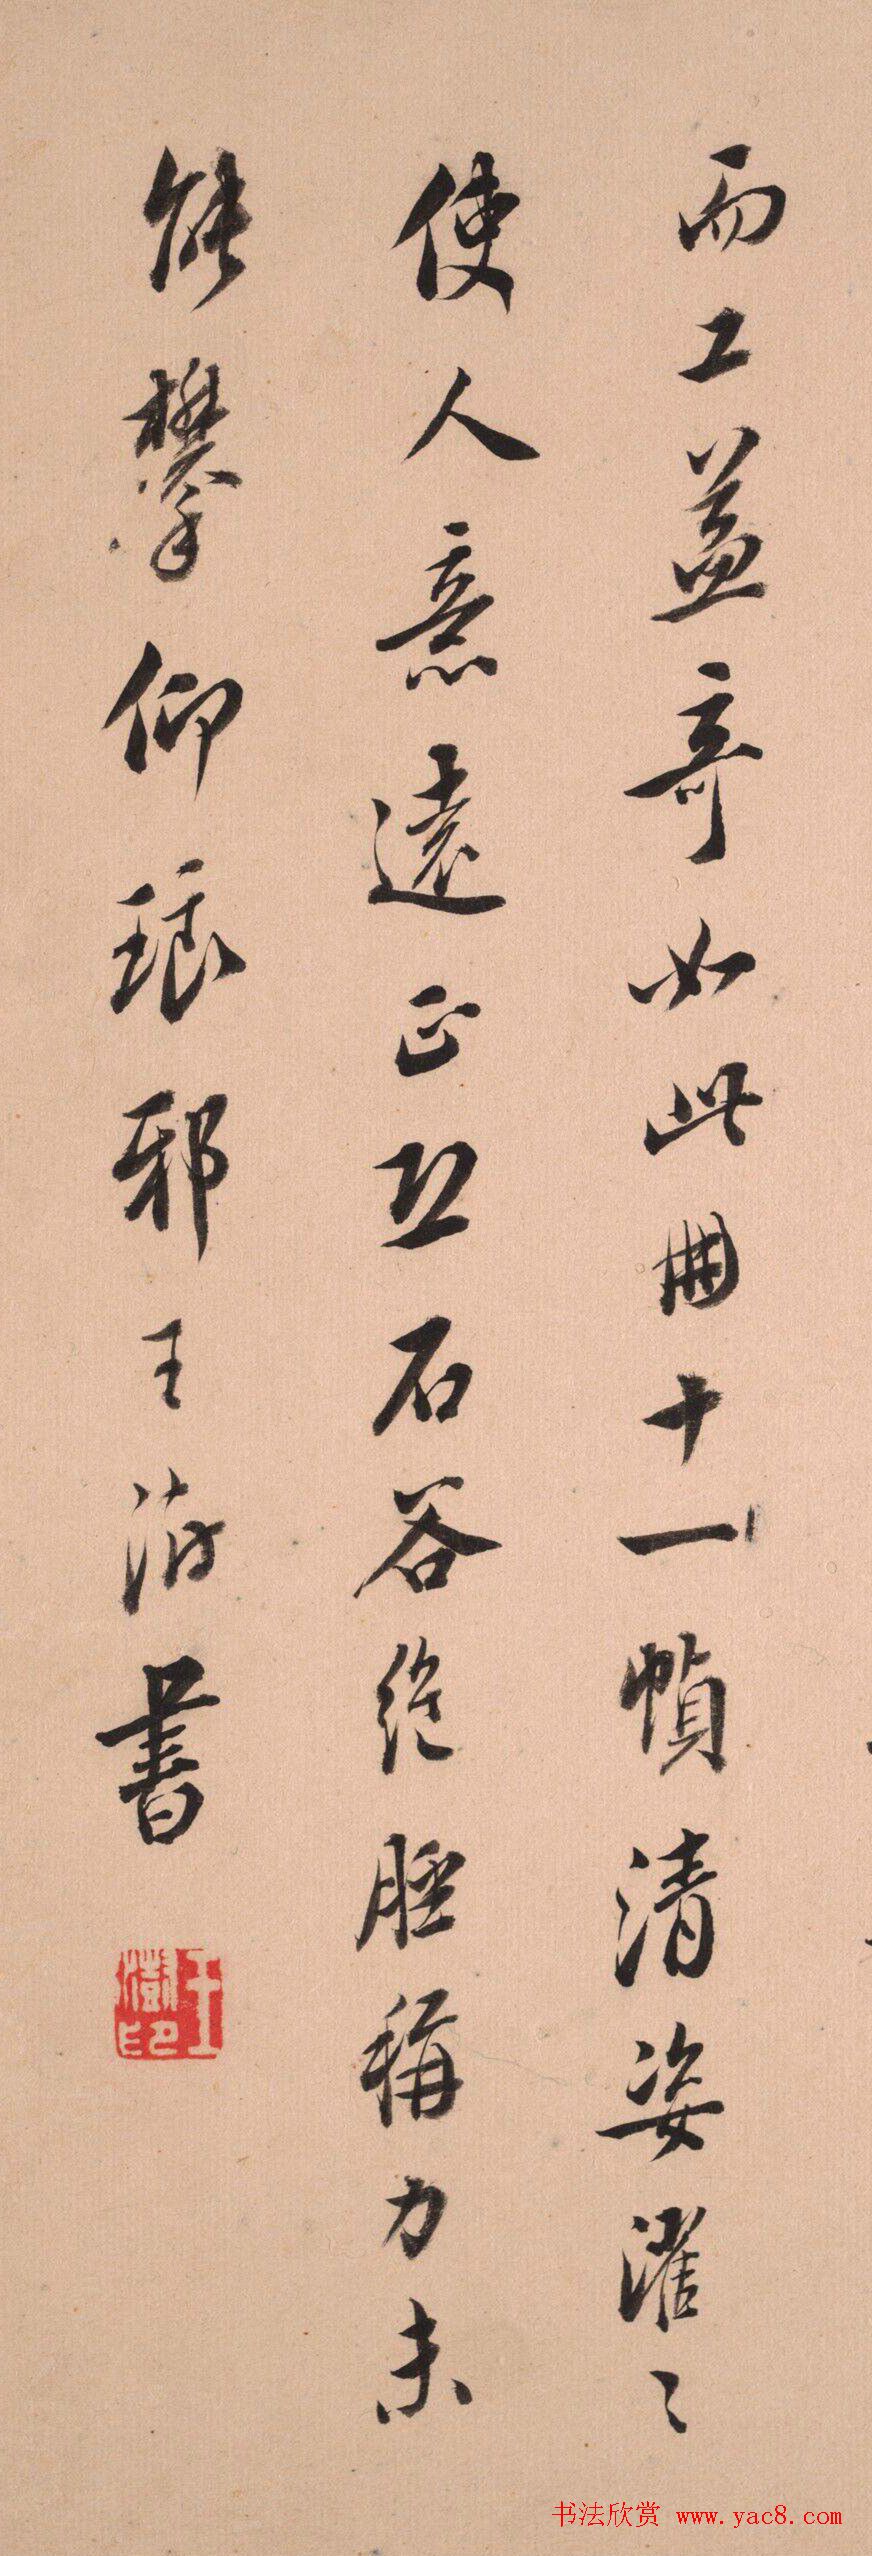 而工益奇如此冊十一幀清姿濯〻
使人意遠正恐石谷絕脛稱力未
能攀仰琅邪王澍書
王澍印
书法欣赏 www.yac8.com